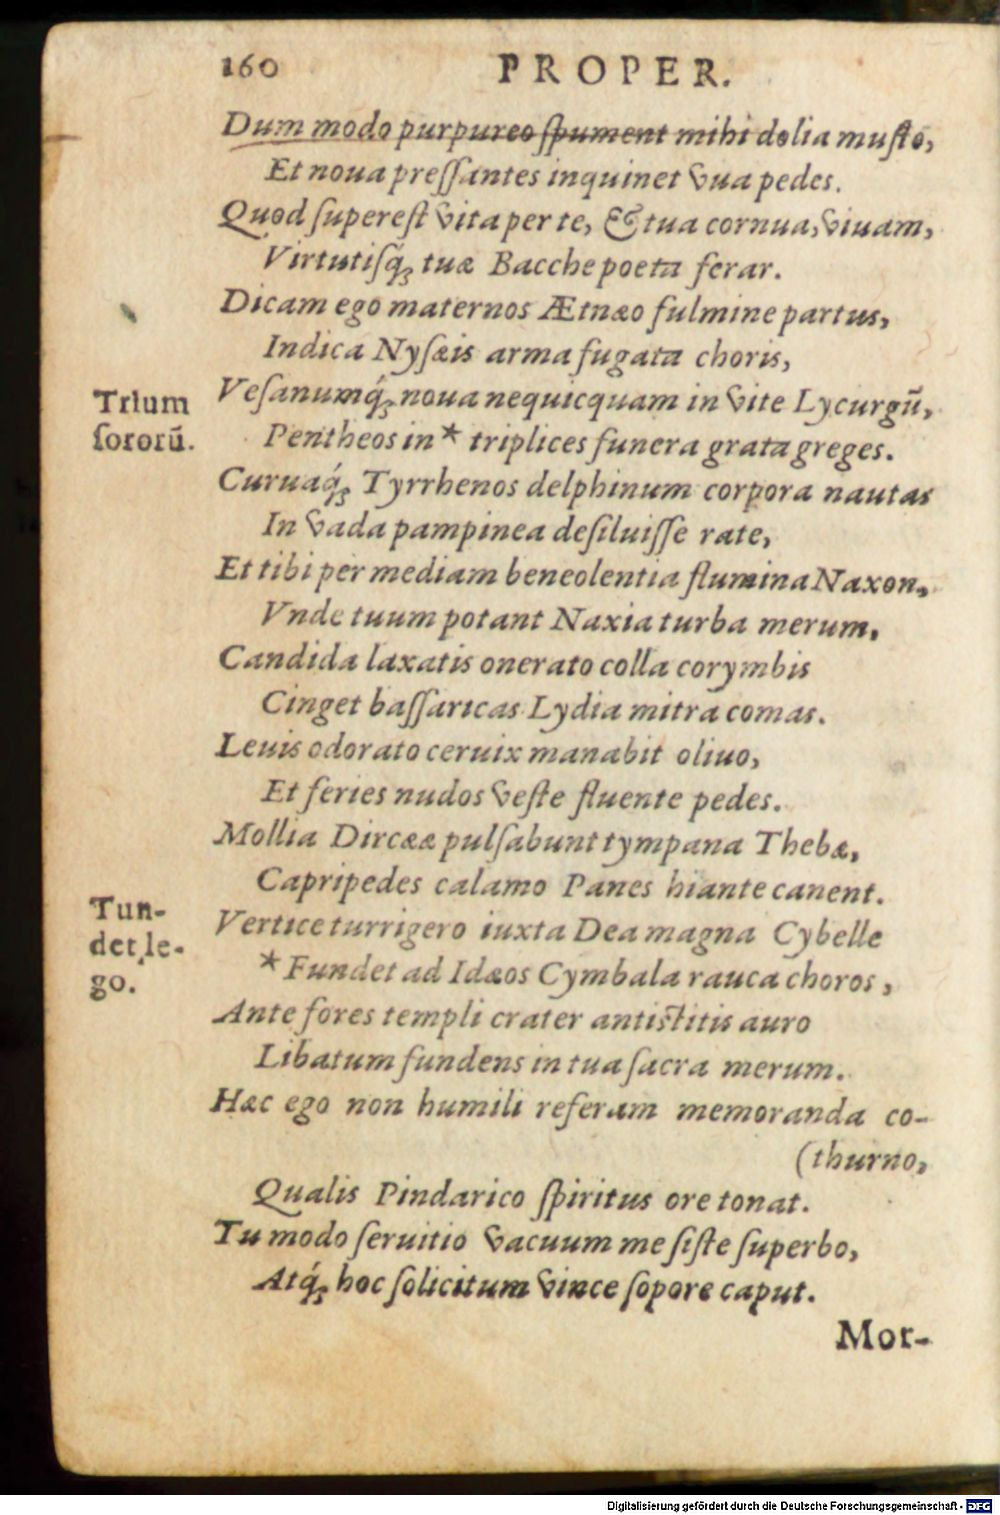 160 PROPER.
Dum modo purpureo ſpument mihi dolia muſto,
Et noua preſſantes inquinet vua pedes.
Quod ſupereſt vita per te, & tua cornua, viuam,
Virtutiſq́; tuæ Bacche poeta ferar.
Dicam ego maternos Ætnæo fulmine partus,
Indica Nyſæis arma fugata choris,
Trium
ſororū.
Veſanumq́; noua nequicquam in vite Lycurgū,
Pentheos in * triplices funera grata greges.
Curuaq́; Tyrrhenos delphinum corpora nautas
In vada pampinea deſiluiſſe rate,
Et tibi per mediam beneolentia flumina Naxon,
Vnde tuum potant Naxia turba merum,
Candida laxatis onerato colla corymbis
Cinget baſſaricas Lydia mitra comas.
Leuis odorato ceruix manabit oliuo,
Et feries nudos veſte fluente pedes.
Mollia Dircææ pulſabunt tympana Thebæ,
Capripedes calamo Panes hiante canent.
Tun-
det, le-
go.
Vertice turrigero iuxta Dea magna Cybelle
* Fundet ad Idæos Cymbala rauca choros,
Ante fores templi crater antiſtitis auro
Libatum fundens in tua ſacra merum.
Hæc ego non humili referam memoranda co-
(thurno,
Qualis Pindarico ſpiritus ore tonat.
Tu modo ſeruitio vacuum me ſiſte ſuperbo,
Atq́; hoc ſolicitum vince ſopore caput.
Mor-
Digitalisierung gefördert durch die Deutsche Forschungsgemeinschaft - DFG